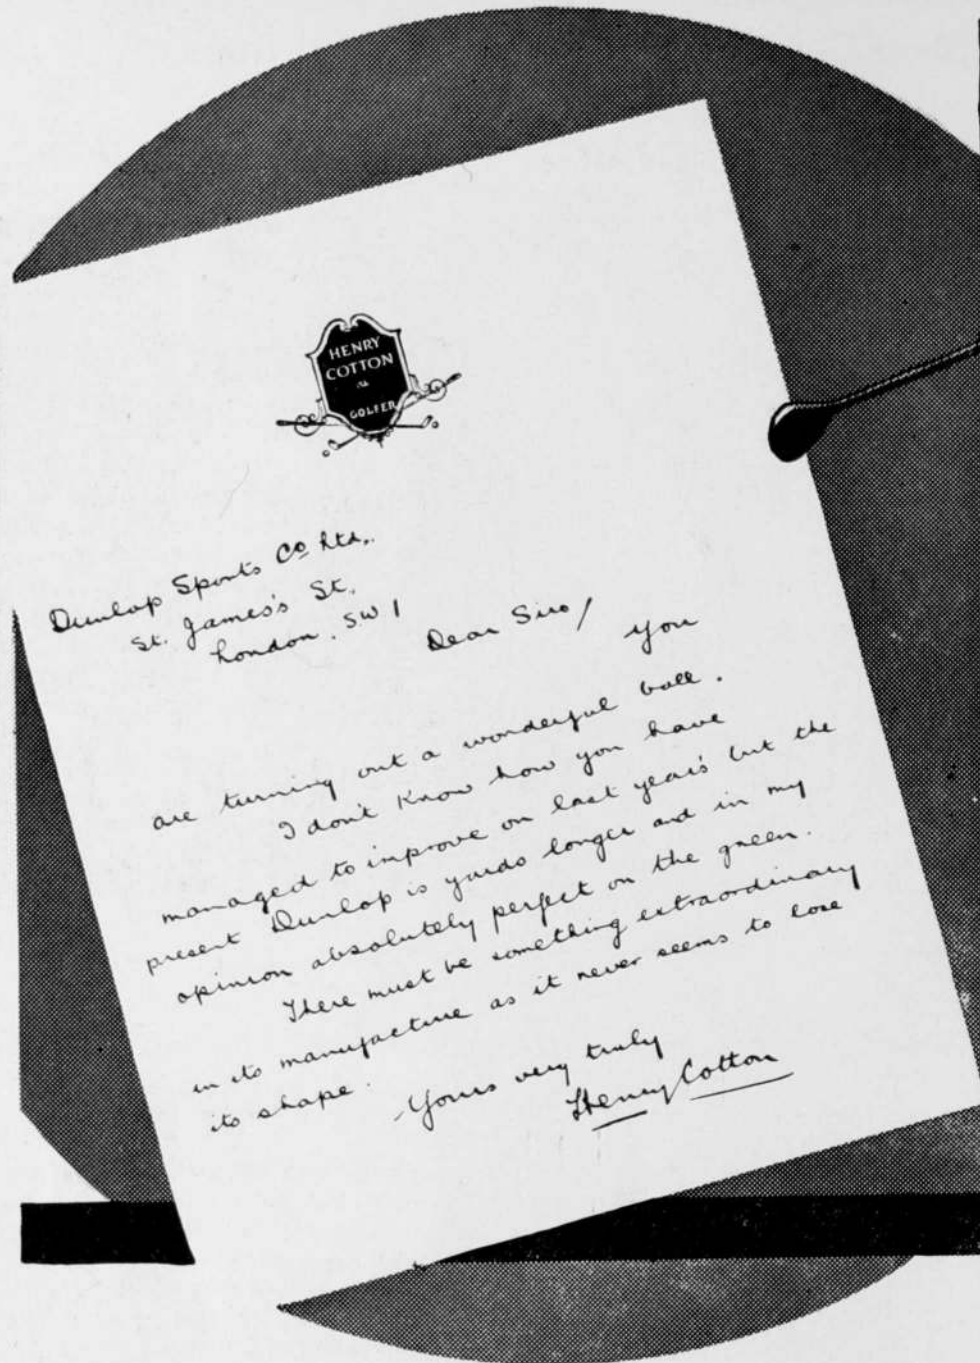 HENRY
COTTON
GOLFER
Dunlop Sports Co Ltd,.
St. James's St.
London. SW1
Dear Sirs/
you
are turning out a wonderful ball.
I don't know how you have
managed to improve on last year's but the
present Dunlop is yards longer and in my
opinion absolutely perfect on the green.
There must be something extraordinary
in its manufacture as it never seems to lose
its shape.
Yours very truly
Henry Cotton